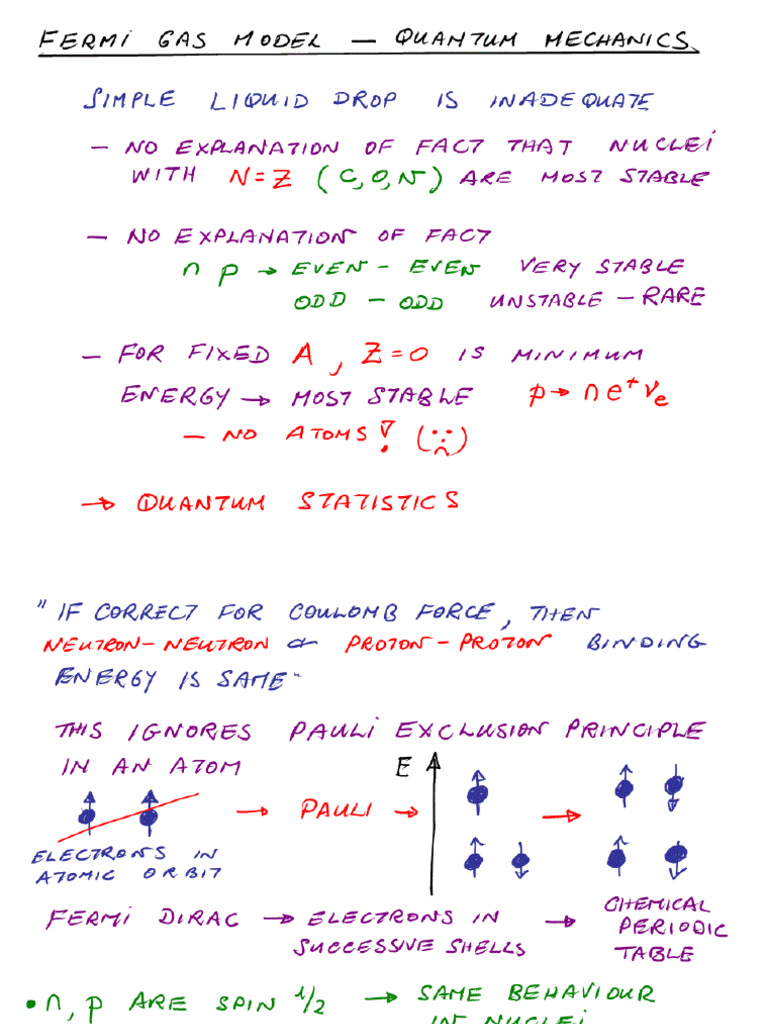 FERMI GAS MODEL — QUANTUM MECHANICS.
SIMPLE LIQUID DROP IS INADEQUATE
— NO EXPLANATION OF FACT THAT NUCLEI
WITH N=Z (C,O,N) ARE MOST STABLE
— NO EXPLANATION OF FACT
n p → EVEN – EVEN VERY STABLE
ODD – ODD UNSTABLE – RARE
— FOR FIXED A, Z=0 IS MINIMUM
ENERGY → MOST STABLE p → n e⁺ νₑ
— NO ATOMS!
→ QUANTUM STATISTICS
"IF CORRECT FOR COULOMB FORCE, THEN
NEUTRON–NEUTRON & PROTON–PROTON BINDING
ENERGY IS SAME"
THIS IGNORES PAULI EXCLUSION PRINCIPLE
IN AN ATOM
E
→ PAULI → →
ELECTRONS IN
ATOMIC ORBIT
FERMI DIRAC → ELECTRONS IN
SUCCESSIVE SHELLS
→ CHEMICAL
PERIODIC
TABLE
• n, p ARE SPIN 1/2 → SAME BEHAVIOUR
IN NUCLEI